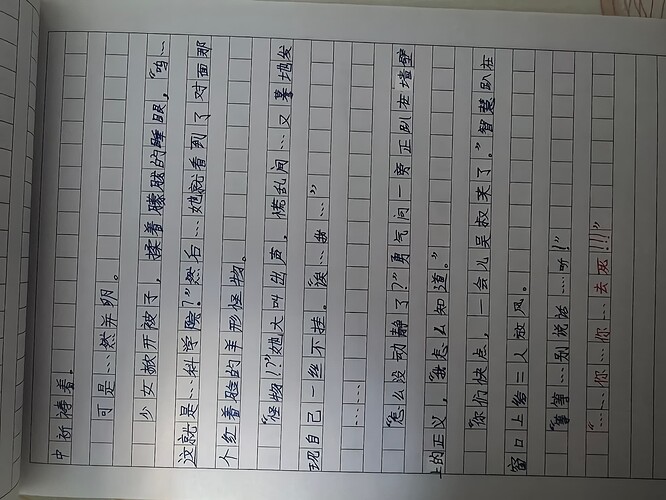 中祈祷着。
可是……然并明。
少女掀开被子，揉着朦胧的睡眼，“呜……
这就是……科学院？”然后……她就看到了对面那
个红着脸的羊形怪物。
“怪物！？”她大叫出声，慌乱间……又蓦地发
现自己一丝不挂。“诶……我……”
……
“怎么没动静了？”勇气问一旁正趴在墙壁
上的正义，“我怎么知道。”
“你们快点，一会儿吴叔来了。”智慧趴在
窗口上给二人放风。
“等等……别说话……听！”
“……你……你……去死！！！”